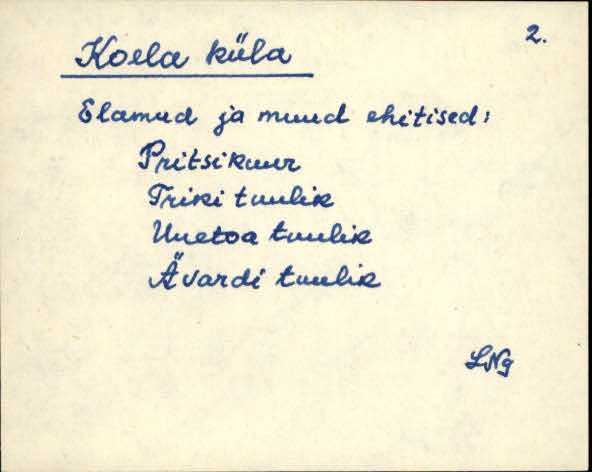 2.
Koela küla
Elamud ja muud ehitised:
Pritsikuur
Triki tuulik
Uuetoa tuulik
Ävardi tuulik
LNg